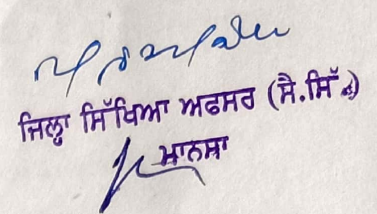 ਜਿਲ੍ਹਾ ਸਿੱਖਿਆ ਅਫਸਰ (ਸੈ.ਸਿੱ.)
ਮਾਨਸਾ